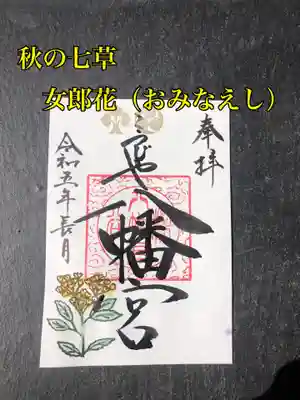 秋の七草
女郎花（おみなえし）
奉拝
八幡宮
令和五年長月